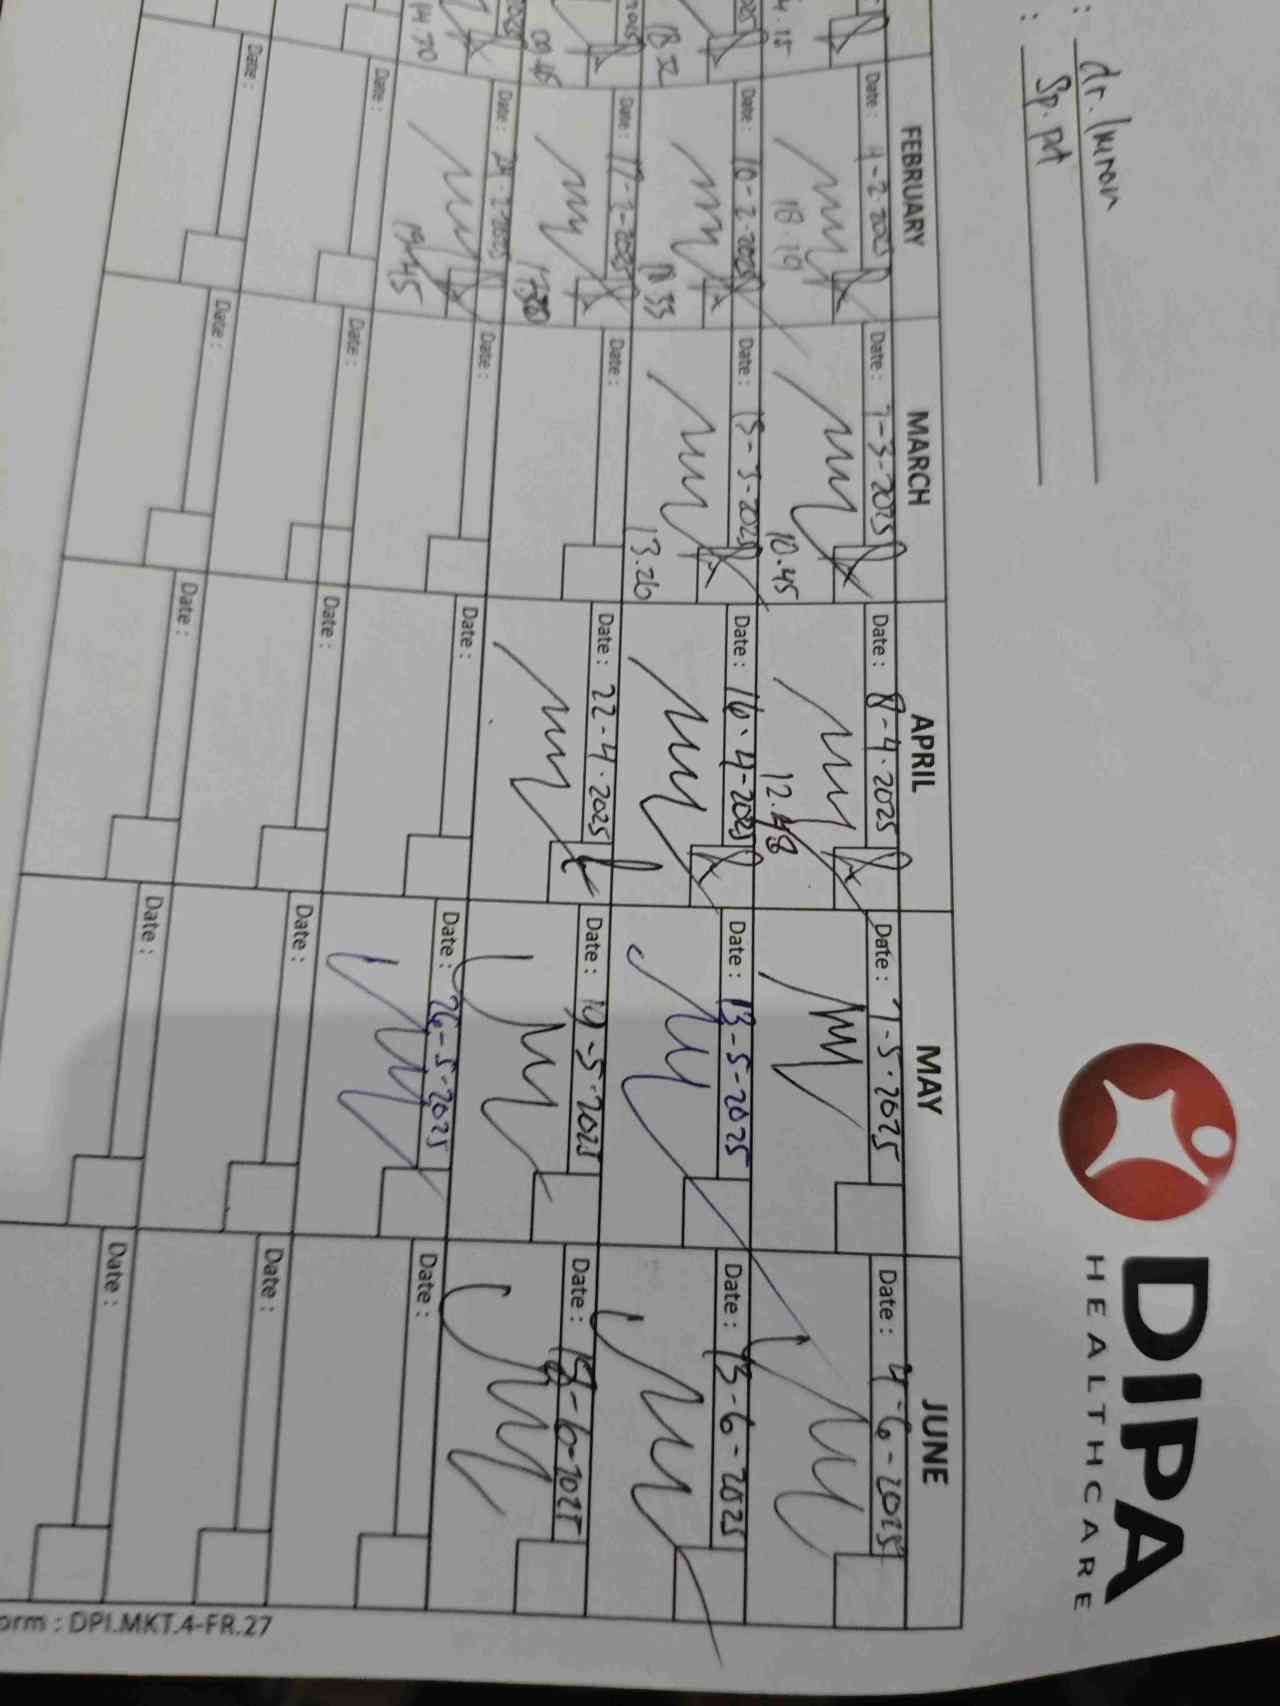 : dr. Imron
: Sp. pd
DIPA
HEALTHCARE
FEBRUARY MARCH APRIL MAY JUNE
Date : 4-2-2025 Date : 7-3-2025 Date : 8-4-2025 Date : 7-5-2025 Date : 4-6-2025
18.19 10.45 12.48
Date : 10-2-2025 Date : 15-3-2025 Date : 16-4-2025 Date : 13-5-2025 Date : 13-6-2025
18 32 18 33 13.26
Date : 17-2-2025 Date : Date : 22-4-2025 Date : 19-5-2025 Date : 18-6-2025
Date : 24-2-2025 Date : Date : Date : 26-5-2025 Date :
19.45
Date : Date : Date : Date : Date :
Date : Date : Date : Date : Date :
orm : DPI.MKT.4-FR.27